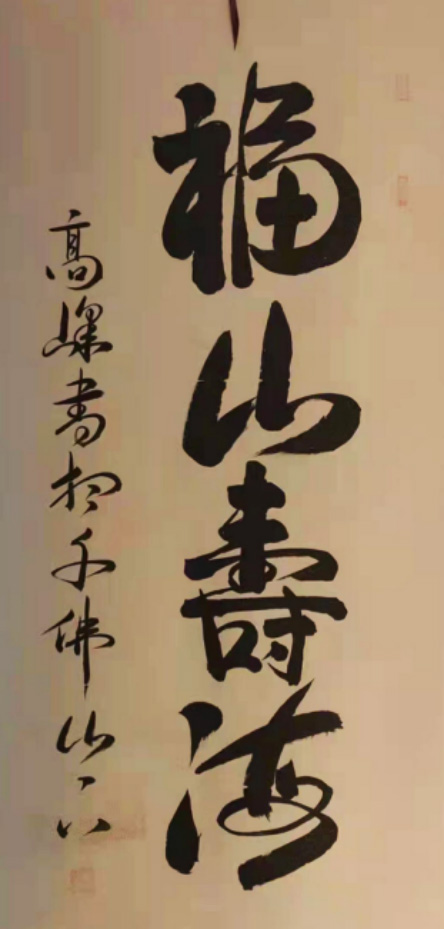 福山壽海
高峰書於千佛山下